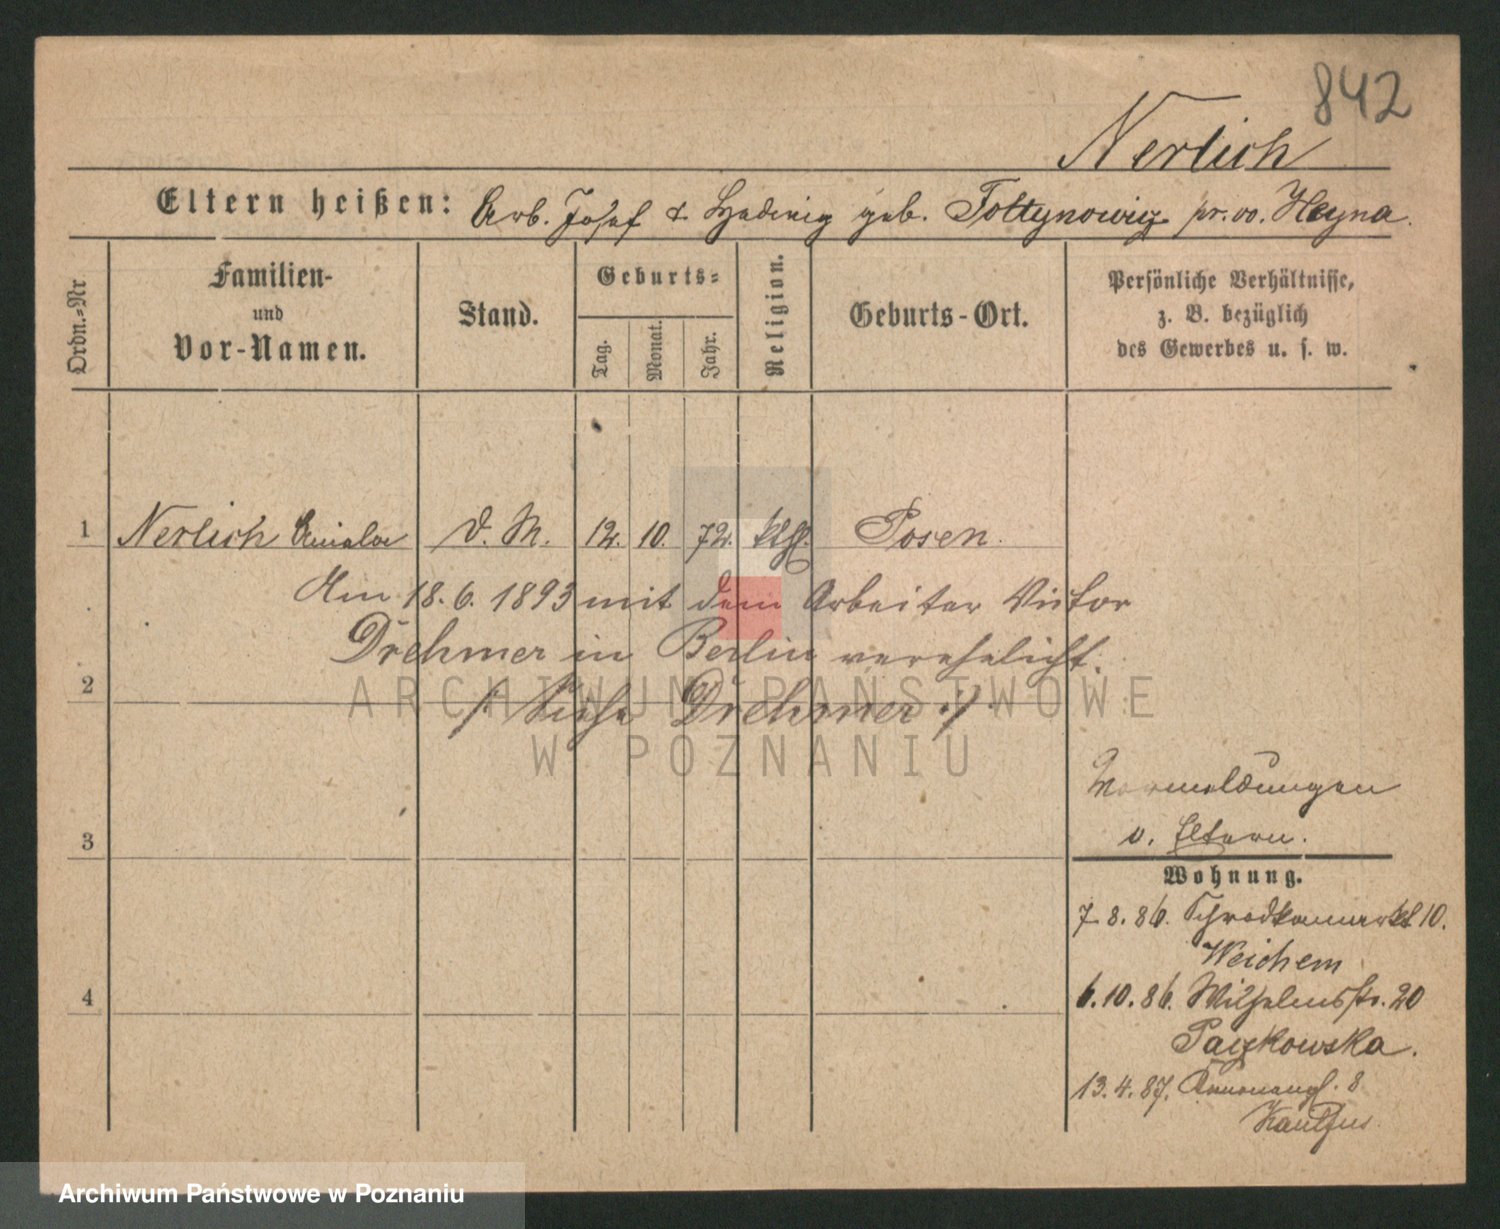 842
Nerlich
Eltern heißen: Arb. Josef & Hedwig geb. Foltynowicz pr. vo. Heyna.
Ordn.-Nr
Familien-
und
Vor-Namen.
Stand.
Geburts-
Tag.
Monat.
Jahr.
Religion.
Geburts-Ort.
Persönliche Verhältnisse,
z. B. bezüglich
des Gewerbes u. s. w.
1 Nerlich d. M. 12. 10. 72. Posen.
Am 18. 6. 1893 mit dem Arbeiter Victor
Drehmer in Berlin verehelicht.
2
/: Siehe Drehmer :/
ARCHIWUM PAŃSTWOWE
W POZNANIU
3
4
v. Eltern.
Wohnung.
7. 8. 86. Schrodkamarkt 10.
Weichem
6. 10. 86. Wilhelmsstr. 20
Paczkowska.
13. 4. 87. 8
Archiwum Państwowe w Poznaniu